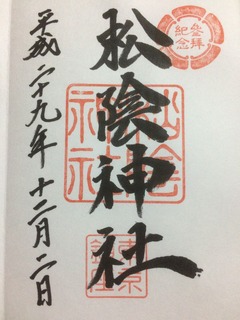 参拝
紀念
松陰神社
松陰
神社
平成二十九年十二月二日